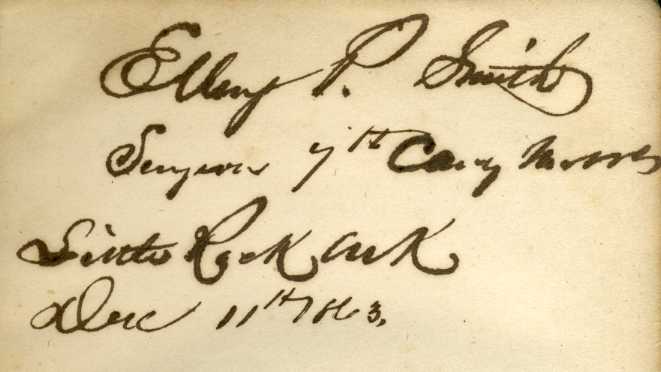 Ellery P. Smith
Surgeon 7th Cavy
Little Rock Ark
Dec 11th 1863.